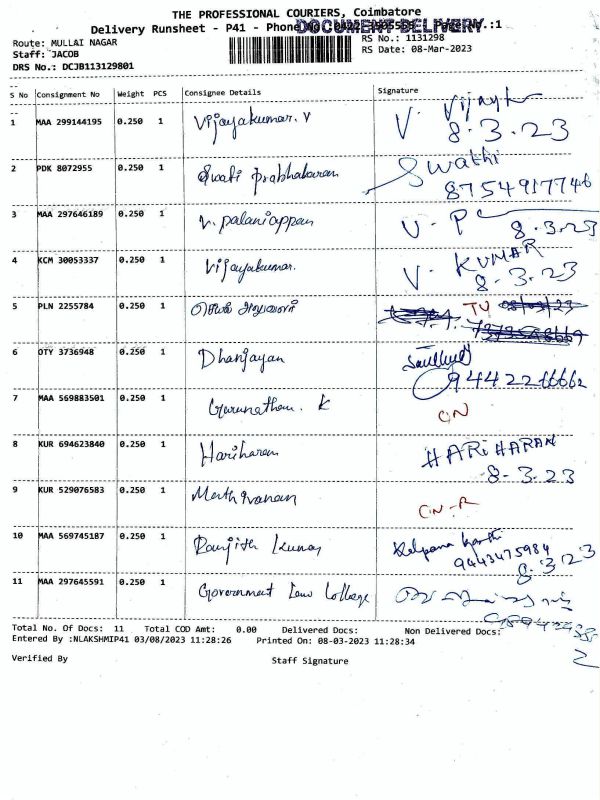 THE PROFESSIONAL COURIERS, Coimbatore
Delivery Runsheet - P41 - Phone No :0422 Page No.:1
DOCUMENT DELIVERY
Route: MULLAI NAGAR RS No.: 1131298
Staff: JACOB RS Date: 08-Mar-2023
DRS No.: DCJB113129801
S No Consignment No Weight PCS Consignee Details Signature
1 MAA 299144195 0.250 1 Vijayakumar. V V. Vijay
8.3.23
2 PDK 8072955 0.250 1 Swati Prabhakaran Swathi
8754917746
3 MAA 297646189 0.250 1 V. palaniappan V. P
8.3.23
4 KCM 30053337 0.250 1 Vijayakumar. V. KUMAR
8.3.23
5 PLN 2255784 0.250 1 08/03/23
6 OTY 3736948 0.250 1 Dhanjayan
9442266662
7 MAA 569883501 0.250 1 Gurunathan. K CN
8 KUR 694623840 0.250 1 Hariharan HARIHARAN
8-3.23
9 KUR 529076583 0.250 1 Mathivanan CN-R
10 MAA 569745187 0.250 1 Ranjith Kumar Kalpana
9443475984
8.3.23
11 MAA 297645591 0.250 1 Government Law College
Total No. Of Docs: 11 Total COD Amt: 0.00 Delivered Docs: Non Delivered Docs:
Entered By :NLAKSHMIP41 03/08/2023 11:28:26 Printed On: 08-03-2023 11:28:34
Verified By Staff Signature